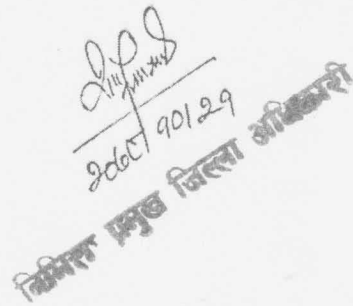 २०६८।१०।२१
निमित्त प्रमुख जिल्ला अधिकारी